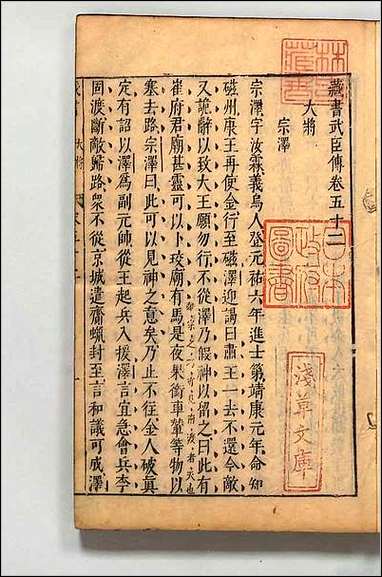 藏書武臣傳卷五十二
大將
宗澤
宗澤字汝霖義烏人登元祐六年進士第靖康元年命知
磁州康王再使金行至磁澤迎謁曰肅王一去不還今敵
又詭辭以致大王願勿行不從澤乃假神以留之曰此有
崔府君廟甚靈可以卜珓廟有馬是夜果銜車輦等物以
塞去路宗澤曰此可以見神之意矣乃止不往金人破真
定有詔以澤爲副元帥從王起兵入援澤言宜急會兵李
固渡斷敵歸路眾不從京城遣齎蠟封至言和議可成澤
日本
政府
圖書
淺草文庫
林氏
藏書
大將